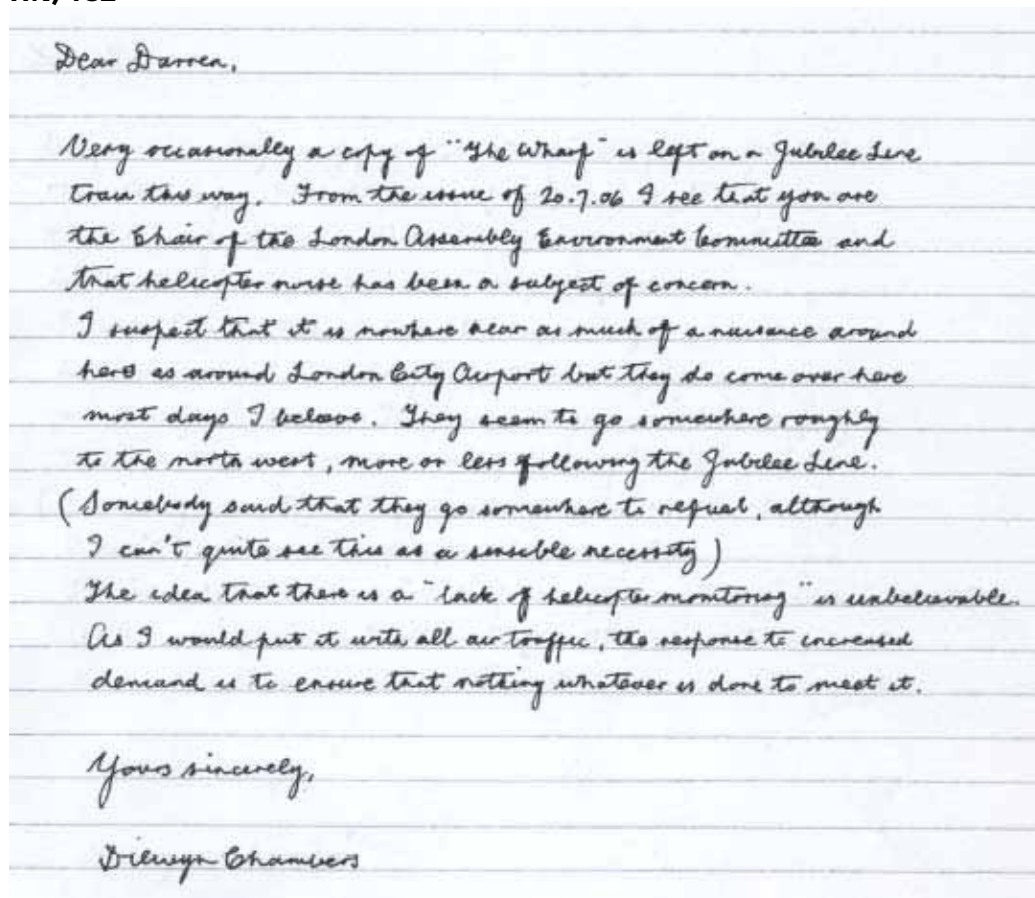 Dear Darren,
Very occasionally a copy of "The Wharf" is left on a Jubilee Line
train this way. From the issue of 20.7.06 I see that you are
the Chair of the London Assembly Environment Committee and
that helicopter noise has been a subject of concern.
I suspect that it is nowhere near as much of a nuisance around
here as around London City Airport but they do come over here
most days I believe. They seem to go somewhere roughly
to the north west, more or less following the Jubilee Line.
(Somebody said that they go somewhere to refuel, although
I can't quite see this as a sensible necessity)
The idea that there is a "lack of helicopter monitoring" is unbelievable.
As I would put it with all air traffic, the response to increased
demand is to ensure that nothing whatever is done to meet it.
Yours sincerely,
Dilwyn Chambers